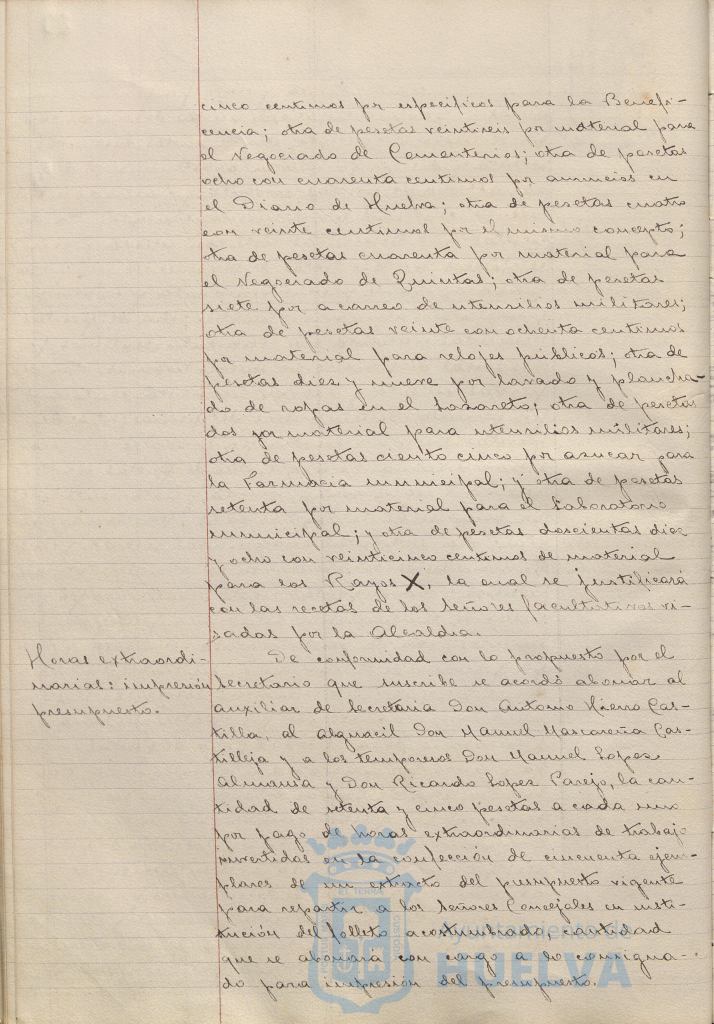 cinco centimos pr especificos para la Benefi-
cencia; otra de pesetas veintiseis por material para
el Negociado de Cementerios; otra de pesetas
ocho con cuarenta centimos por anuncios en
el Diario de Huelva; otra de pesetas cuatro
con veinte centimos por el mismo concepto;
otra de pesetas cuarenta por material para
el Negociado de Quintas; otra de pesetas
siete por acarreo de utensilios militares;
otra de pesetas veinte con ochenta centimos
por material para relojes públicos; otra de
pesetas diez y nueve por lavado y plancha-
do de ropas en el Lazareto; otra de pesetas
dos por material para utensilios militares;
otra de pesetas ciento cinco por azucar para
la Farmacia municipal; y otra de pesetas
setenta por material para el Laboratorio
municipal; y otra de pesetas doscientas diez
y ocho con veinticinco centimos de material
para los Rayos X, la cual se justificará
con las recetas de los Señores facultativos vi-
sadas por la Alcaldia.
Horas extraordi-
narias: impresión
presupuesto.
De conformidad con lo propuesto por el
Secretario que suscribe se acordó abonar al
auxiliar de Secretaria Don Antonio Hierro Cas-
tilla, al alguacil Don Manuel Mascareña Cas-
tilleja y a los temporeros Don Manuel Lopez
Almansa y Don Ricardo Lopez Parejo, la can-
tidad de setenta y cinco pesetas a cada uno
por pago de horas extraordinarias de trabajo
invertidas en la confección de cincuenta ejem-
plares de un extracto del presupuesto vigente
para repartir a los Señores Concejales en susti-
tución del folleto acostumbrado, cantidad
que se abonará con cargo a lo consigna-
do para impresión del presupuesto.
Ayuntamiento de
HUELVA